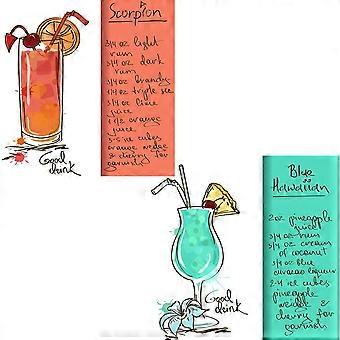 Scorpion
3/4 oz light
rum
3/4 oz dark
rum
3/4 oz brandy
1/4 oz triple sec
3/4 oz lime
juice
1 1/2 orange
juice
3-5 ice cubes
orange wedge
& cherry for
garnish
Good
drink
Blue
Hawaiian
2 oz pineapple
juice
3/4 oz rum
3/4 oz cream
of coconut
3/4 blue
curacao liqueur
2-4 ice cubes
pineapple
wedge &
cherry for
garnish
Good
drink